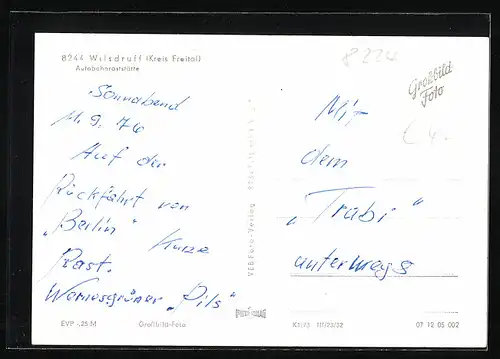 8244 Wilsdruff (Kreis Freital)
Autobahnraststätte
8224
Großbild
Foto
Sonnabend
11. 9. 76
Auf der
Rückfahrt von
„Berlin" kurze
Rast.
Wernesgrüner „Pils"
Mit
dem
„Trabi"
unterwegs
EVP -,25 M
Großbild-Foto
VEB Foto-Verlag
K1/73 III/23/32
07 12 05 002